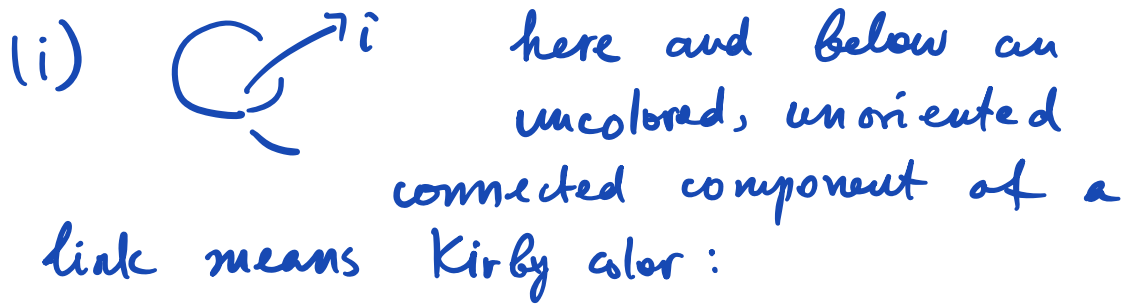 (i) i here and below an
uncolored, unoriented
connected component of a
link means Kirby color :